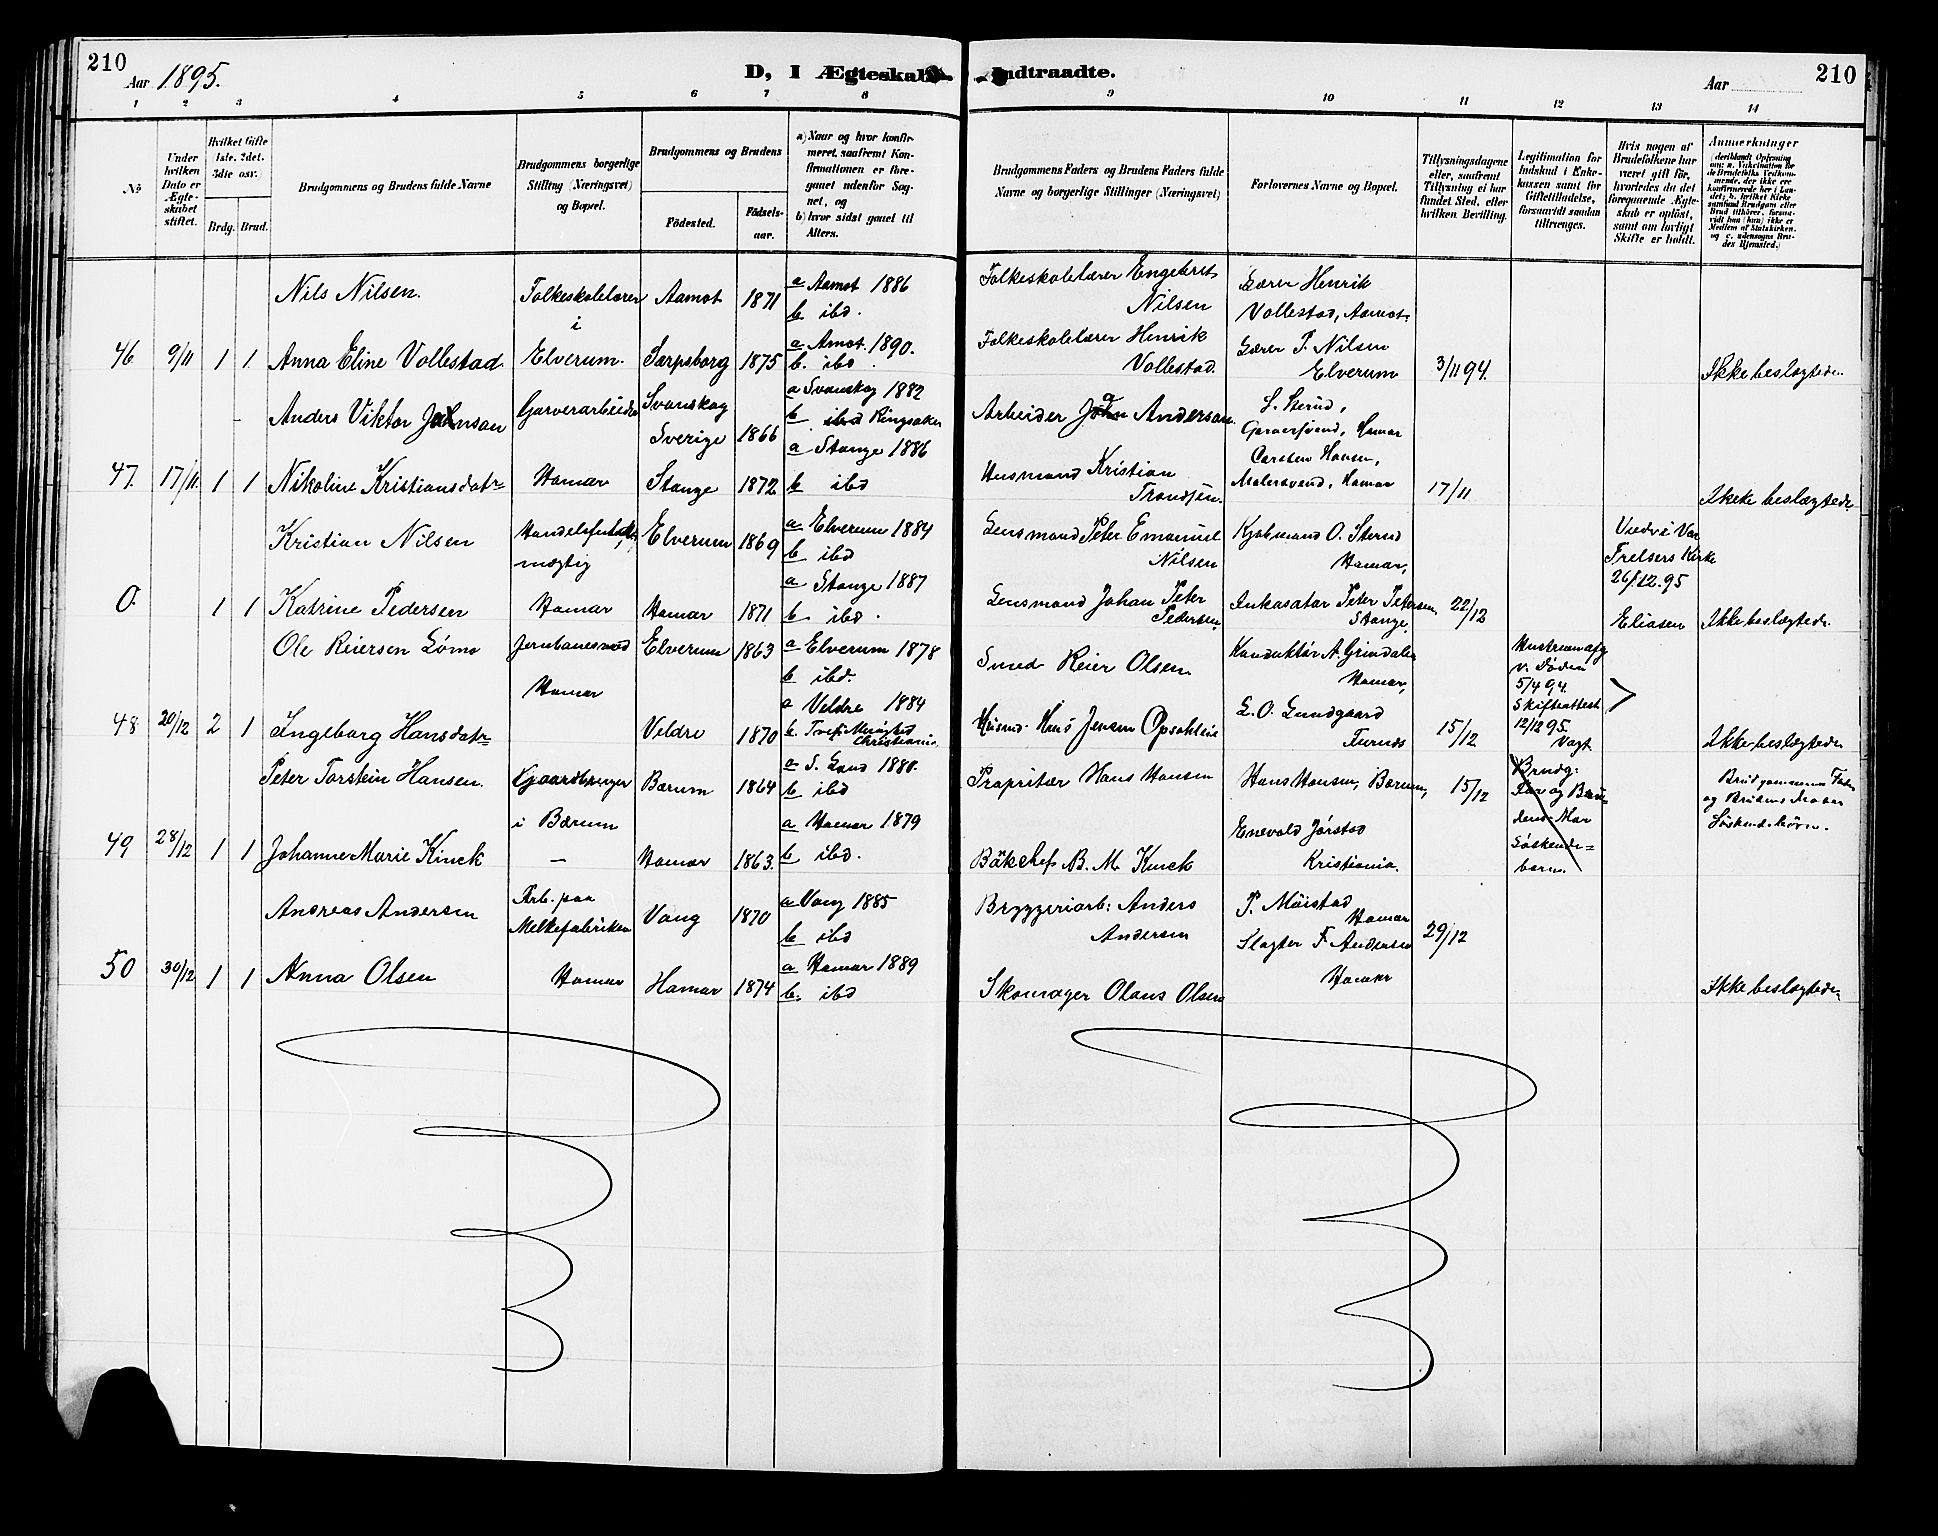 210
Aar 1895.
D, I Ægteskab Indtraadte.
Aar
210
1 2 3 4 5 6 7 8 9 10 11 12 13 14
No
Under hvilken Dato er Ægteskabet stiftet.
Hvilket Gifte 1ste, 2det, 3die osv.
Brdg. Brud.
Brudgommens og Brudens fulde Navne
Brudgommens borgerlige Stilling (Næringsvei) og Bopæl.
Brudgommens og Brudens
Födested.
Födsels-aar.
a) Naar og hvor konfirmeret, saafremt Konfirmationen er foregaaet udenfor Sognet, og
b) hvor sidst gaaet til Alters.
Brudgommens Faders og Brudens Faders fulde Navne og borgerlige Stillinger (Næringsvei)
Forlovernes Navne og Bopæl.
Tillysningsdagene eller, saafremt Tillysning ei har fundet Sted, efter hvilken Bevilling.
Legitimation for Indskud i Enkekassen samt for Giftetilladelse, forsaavidt saadan tiltrænges.
Hvis nogen af Brudefolkene har været gift för, hvorledes da det foregaaende Ægteskab er oplöst, samt om lovligt Skifte er holdt.
Anmærkninger
Nils Nilsen. Folkeskolelærer Aamot 1871 a Aamot 1886 Folkeskolelærer Engebret Lærer Henrik
i b ibd. Nilsen Vollestad, Aamot.
46 9/11 1 1 Anna Eline Vollestad Elverum. Sarpsborg 1875 a Amot. 1890. Folkeskolelærer Henrik Lærer P. Nilsen
b. ibd. Vollestad. Elverum 3/11 94. Ikke beslægtede.
Anders Viktor Johnson Garverarbeider Svanskog a Svanskog 1882 Arbeider John Anderson S. Skrud,
Sverige 1866 b ibd Ringsaker Garversvend, Hamar
47. 17/11. 1 1 Nikoline Kristiansdatr Hamar Stange 1872 a Stange 1886 Husmand Kristian Carsten Hansen,
b ibd Trondsen. Malersvend, Hamar 17/11 Ikke beslægtede.
Kristian Nilsen Elverum 1869 a Elverum 1884 Lensmand Peter Emanuel Kjøbmand O. Sterud Viedv i Vor
mægtig b ibd Nilsen Hamar, Frelsers Kirke
26/12.95
0. 1 1 Katrine Pedersen Hamar Hamar 1871 a Stange 1887 Lensmand Johan Peter Inkasator Peter Petersen, 22/12
b ibd. Pedersen. Stange. Eliasen Ikke beslægtede.
Ole Reiersen Lømo Jernbanesmed Elverum 1863 a Elverum 1878 Smed Reier Olsen Konduktør A. Grindalen Hustruen afg
Hamar b ibd. Hamar, v. Døden
5/4 94.
48. 20/12 2 1 Ingeborg Hansdatr Veldre 1870 a Veldre 1884 Hans Jensen L. O. Lundgaard 15/12 Skifteattest
b. Christiania Furnes 12/12 95.
Vogt Ikke beslægtede
Peter Torstein Hansen. Gaardbruger Bærum 1864 a S. Land 1880. Propritær Hans Hansen Hans Hansen, Bærum, 15/12 Brudg: Brudgommens Fader
i Bærum b ibd Far og Bru- og Brudens Moder
49 28/12 1 1 Johanne Marie Kinck — Hamar 1863. a Hamar 1879 B. M. Kinck Enevold Jørstad dens Mor Søskendebørn.
b ibd. Kristiania. Søskende=
børn.
Andreas Andersen Arb. paa Vang 1870 a Vang 1885 Bryggeriarb: Anders P. Møistad
Melkefabriken b ibd Andersen Hamar 29/12
50 30/12 1 1 Anna Olsen Hamar Hamar 1874 a Hamar 1889 Skomager Olaus Olsen Slagter F. Andersen
b. ibd Hamar Ikke beslægtede.